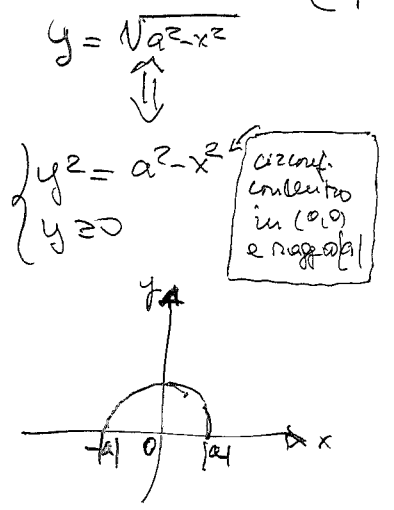 y = √a²-x²
⇕
{ y² = a²-x²
y ≥ 0
circonf.
con centro
in (0,0)
e raggio |a|
y
-|a| 0 |a| x